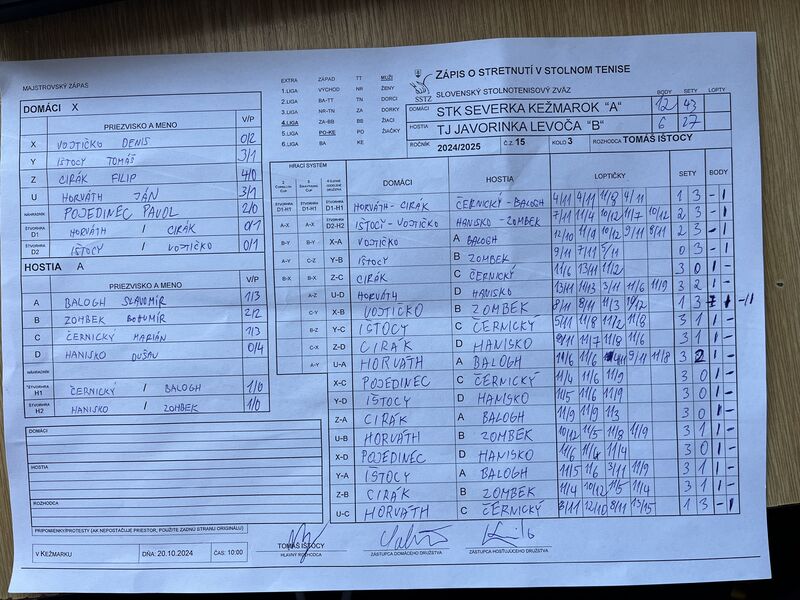 MAJSTROVSKÝ ZÁPAS
DOMÁCI X
PRIEZVISKO A MENO V/P
X VOJTIČKO DENIS 0/2
Y IŠTOCY TOMÁŠ 3/1
Z CIRÁK FILIP 4/0
U HORVÁTH JÁN 3/1
NÁHRADNÍK POJEDINEC PAVOL 2/0
ŠTVORHRA D1 HORVÁTH / CIRÁK 0/1
ŠTVORHRA D2 IŠTOCY / VOJTIČKO 0/1
HOSTIA A
PRIEZVISKO A MENO V/P
A BALOGH SLAVOMÍR 1/3
B ZOMBEK BOHUMÍR 2/2
C ČERNICKÝ MARIÁN 1/3
D HANISKO DUŠAN 0/4
NÁHRADNÍK
ŠTVORHRA H1 ČERNICKÝ / BALOGH 1/0
ŠTVORHRA H2 HANISKO / ZOMBEK 1/0
DOMÁCI
HOSTIA
ROZHODCA
PRIPOMIENKY/PROTESTY (AK NEPOSTAČUJE PRIESTOR, POUŽITE ZADNÚ STRANU ORIGINÁLU)
V KEŽMARKU DŇA: 20.10.2024 ČAS: 10:00
EXTRA ZÁPAD TT MUŽI
1.LIGA VÝCHOD NR ŽENY
2.LIGA BA-TT TN DORCI
3.LIGA NR-TN ZA DORKY
4.LIGA ZA-BB BB ŽIACI
5.LIGA PO-KE PO ŽIAČKY
6.LIGA BA KE
SSTZ
ZÁPIS O STRETNUTÍ V STOLNOM TENISE
SLOVENSKÝ STOLNOTENISOVÝ ZVÄZ
BODY SETY LOPTY
DOMÁCI STK SEVERKA KEŽMAROK "A" 12 43
HOSTIA TJ JAVORINKA LEVOČA "B" 6 27
ROČNÍK 2024/2025 Č.Z. 15 KOLO 3 ROZHODCA TOMÁŠ IŠTOCY
HRACÍ SYSTÉM DOMÁCI HOSTIA LOPTIČKY SETY BODY
D1-H1 HORVÁTH - CIRÁK ČERNICKÝ - BALOGH 4/11 4/11 11/8 4/11 1 3 - 1
A-X D2-H2 IŠTOCY - VOJTIČKO HANISKO - ZOMBEK 7/11 11/4 10/12 11/7 10/12 2 3 - 1
B-Y X-A VOJTIČKO A BALOGH 12/10 11/9 10/12 9/11 8/11 2 3 - 1
C-Z Y-B IŠTOCY B ZOMBEK 9/11 7/11 5/11 0 3 - 1
B-X Z-C CIRÁK C ČERNICKÝ 11/6 13/11 11/2 3 0 1 -
A-Z U-D HORVÁTH D HANISKO 13/11 11/13 3/11 11/6 11/9 3 2 1 -
C-Y X-B VOJTIČKO B ZOMBEK 8/11 8/11 11/3 1 3
B-Z Y-C IŠTOCY C ČERNICKÝ 5/11 11/8 11/2 11/8 3 1 1 -
C-X Z-D CIRÁK D HANISKO 9/11 11/7 11/8 11/6 3 1 1 -
A-Y U-A HORVÁTH A BALOGH 11/6 11/6 9/11 11/8 3 2 1 -
X-C POJEDINEC C ČERNICKÝ 11/4 11/6 11/9 3 0 1 -
Y-D IŠTOCY D HANISKO 11/5 11/6 11/9 3 0 1 -
Z-A CIRÁK A BALOGH 11/9 11/9 11/3 3 0 1 -
U-B HORVÁTH B ZOMBEK 10/12 11/5 11/8 11/9 3 1 1 -
X-D POJEDINEC D HANISKO 11/6 11/4 11/4 3 0 1 -
Y-A IŠTOCY A BALOGH 11/5 11/6 3/11 11/9 3 1 1 -
Z-B CIRÁK B ZOMBEK 11/4 10/12 11/5 11/4 3 1 1 -
U-C HORVÁTH C ČERNICKÝ 8/11 12/10 8/11 13/15 1 3 - 1
TOMÁŠ IŠTOCY
HLAVNÝ ROZHODCA
ZÁSTUPCA DOMÁCEHO DRUŽSTVA
ZÁSTUPCA HOSŤUJÚCEHO DRUŽSTVA